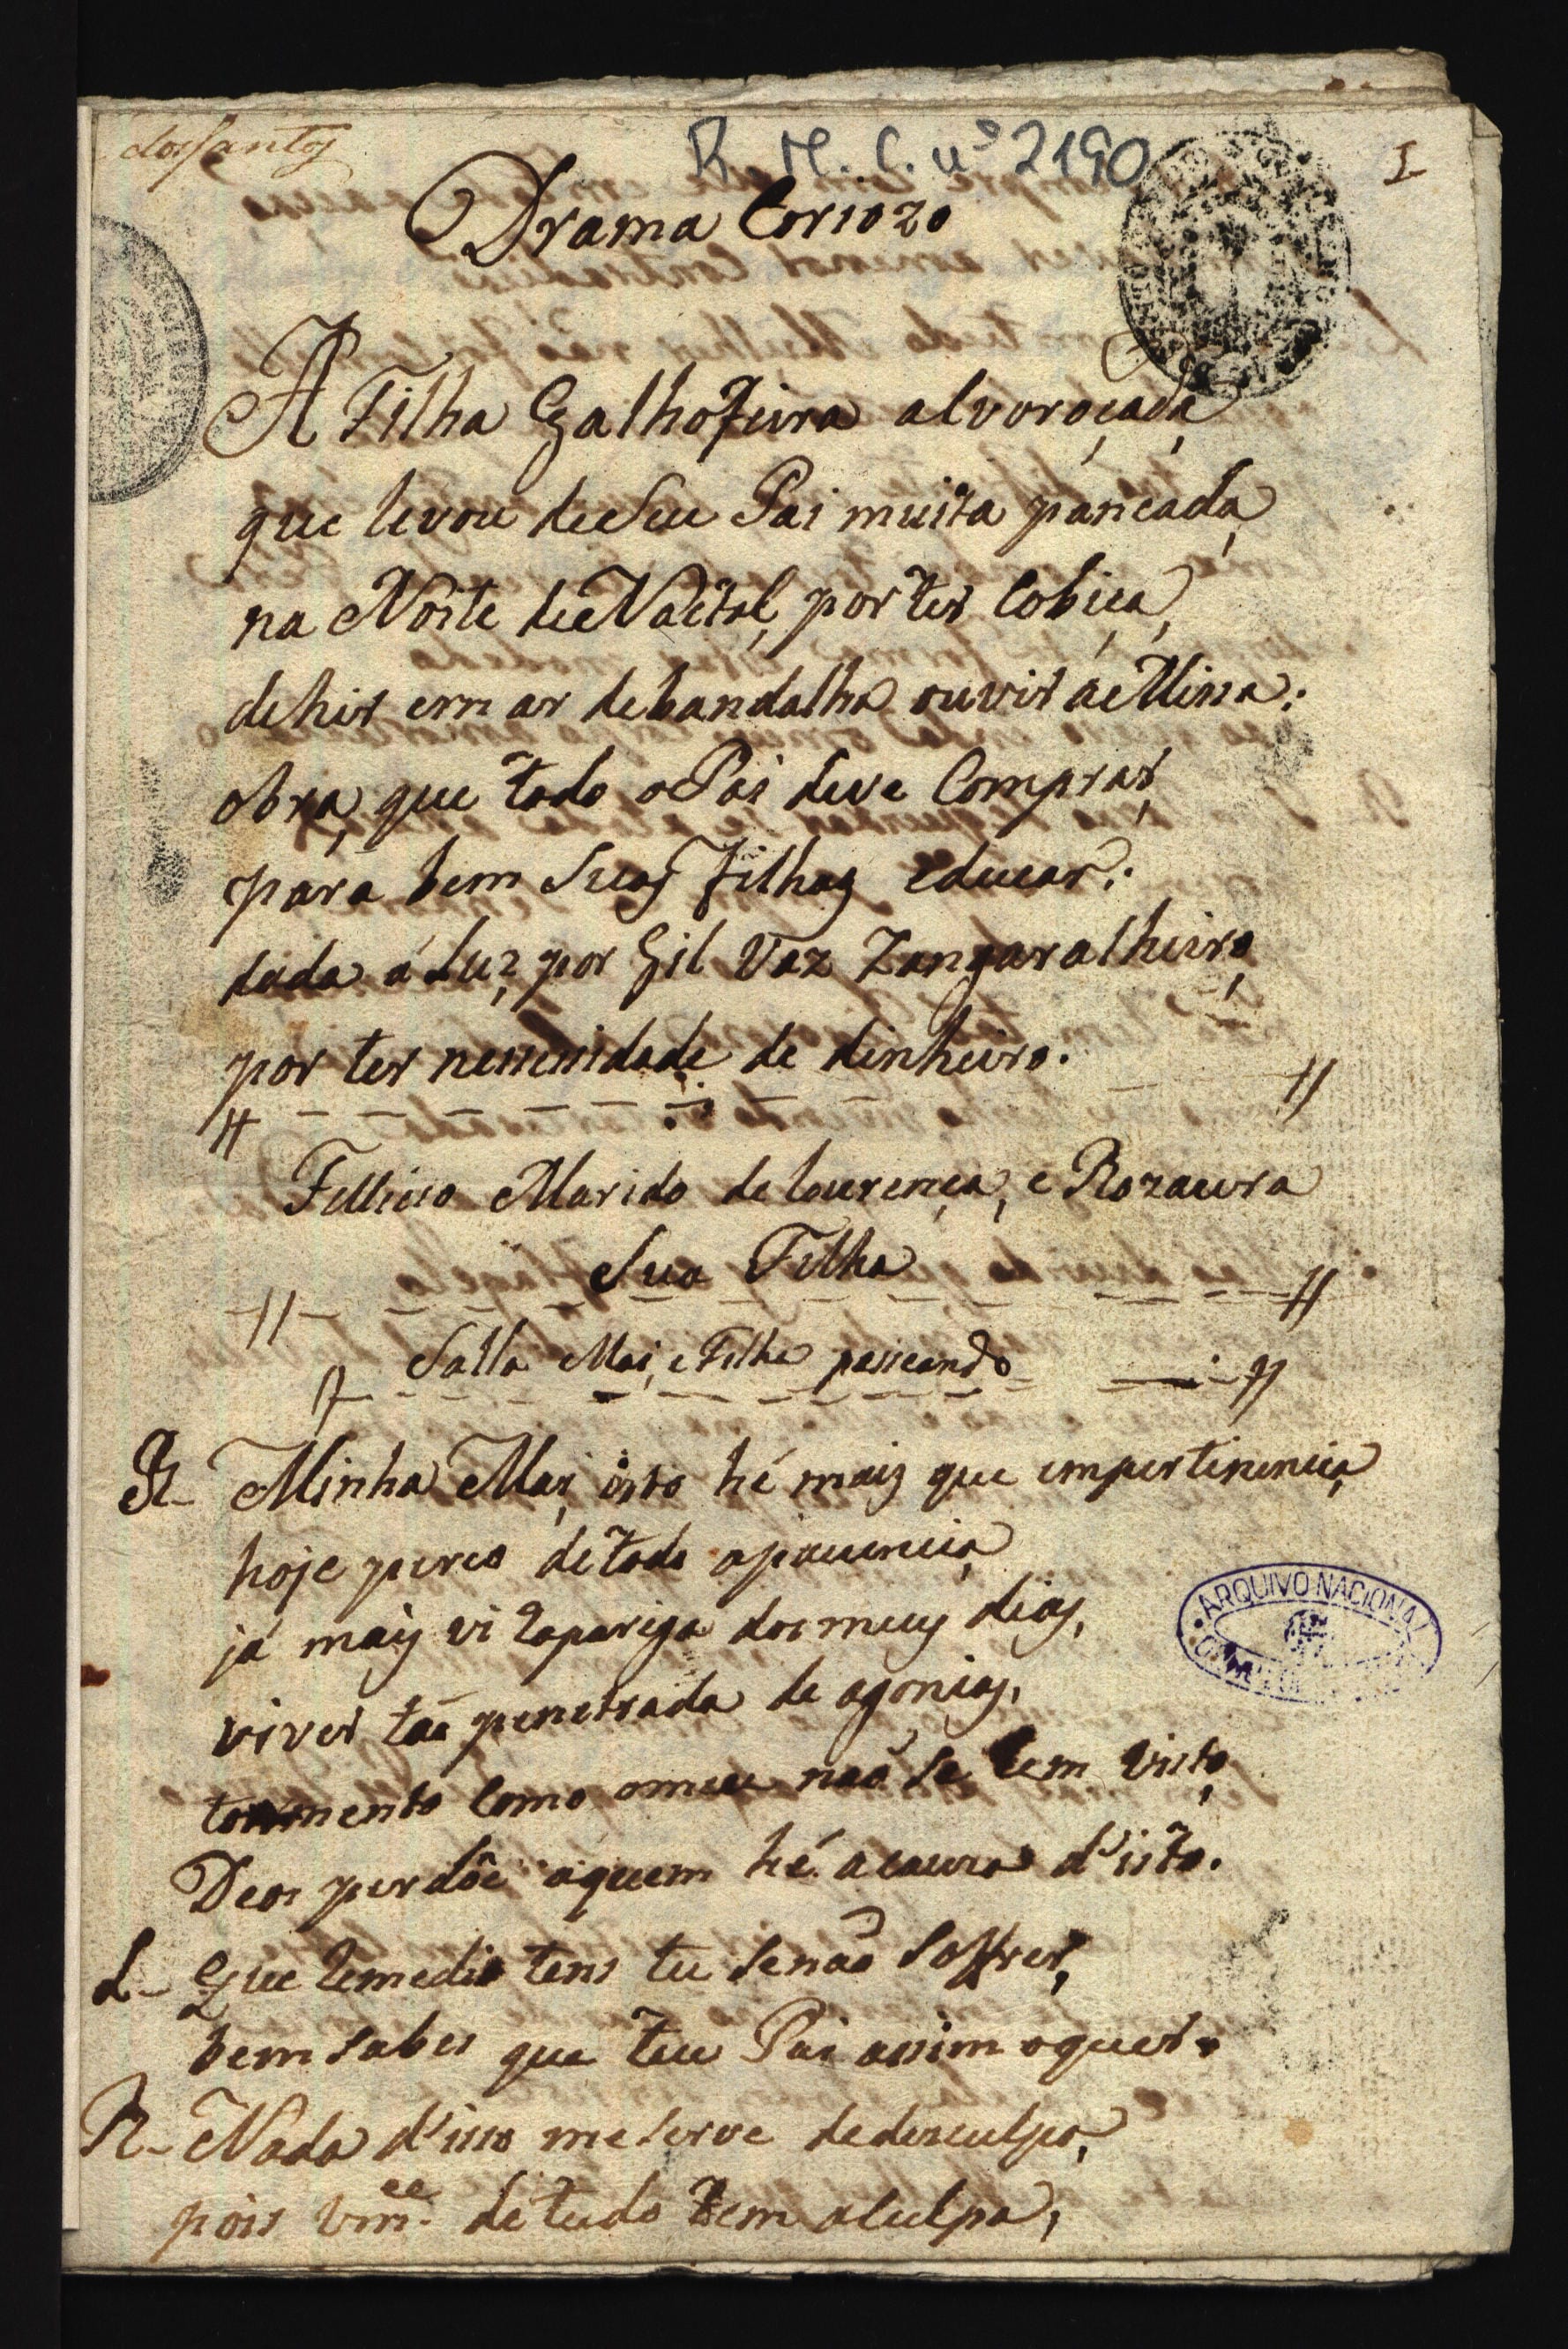 dos Santos
R. M. C. nº 2190
1
Drama Coriozo
A Filha Galhofeira alvoroçada,
que levou de Seu Pai muita pancada,
na Noite de Nactal, por ter Cobiça,
de hir em ar de bandalha ouvir a Missa:
obra, que todo o Pai deve Comprar,
para bem Suas Filhas educar:
dada á Luz, por Gil Vaz Zangaralheiro,
por ter nessesidade de dinheiro.
Marido de Lourença, e Rozaura
Sua Filha
Salla Mai, e Filha passeando
R- Minha Mai, isto hé mais que empertinencia,
hoje perco de todo apaciencia,
já mais vi Rapariga dos meus dias,
viver taõ penetrada de agonias,
tormento Como omeu naõ Se tem visto,
Deos perdôe aquem hé acauza d'isto.
L- Que Remedio tens tu Senaõ Soffrer,
bem sabes que teu Pai assim oquer.
R- Nada d'isso me Serve dedesculpa,
pois Vm.ce de tudo tem aculpa,
ARQUIVO NACIONAL